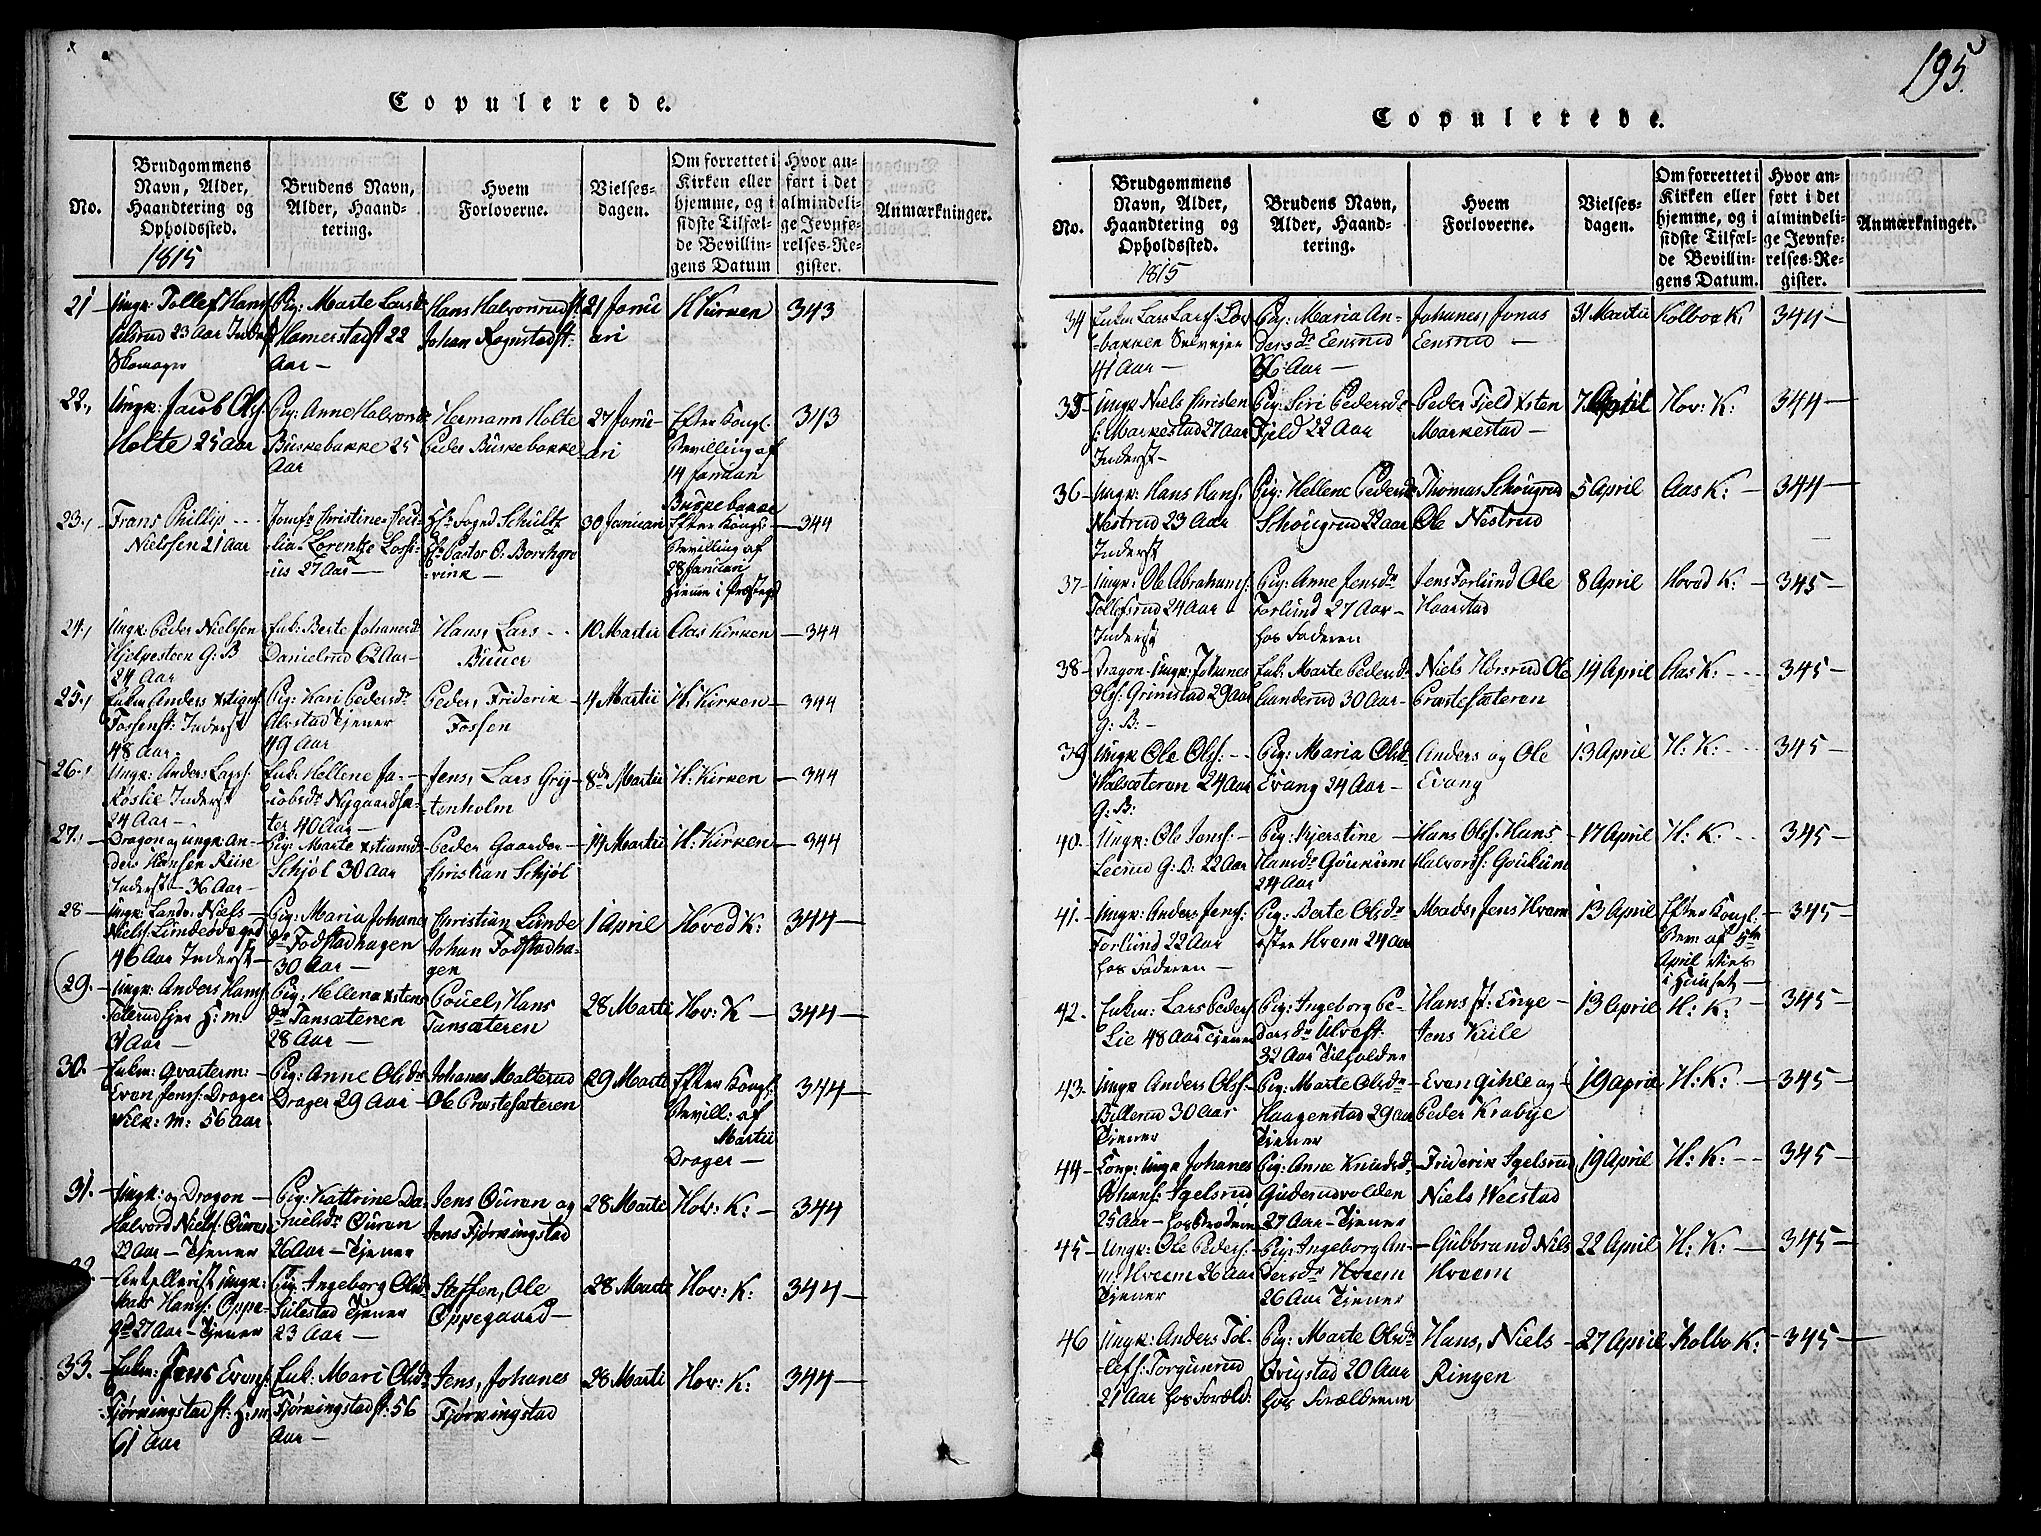 195.
Copulerede.
No.
Brudgommens
Navn, Alder,
Haandtering og
Opholdssted.
1815
Brudens Navn,
Alder, Haand-
tering.
Hvem
Forloverne.
Vielses-
dagen.
Om forrettet i
Kirken eller
hjemme, og i
sidste Tilfæl-
de Bevillin-
gens Datum
Hvor an-
ført i det
almindeli-
ge Jevnfø-
relses-Re-
gister.
Anmærkninger.
21 Ungk: Tollef Hans
23 Aar Inderst
Skomager
Pig: Marte Larsdr
Hamerstad 22
Aar —
Hans Halvorsrud
Johan Rognstad
21 Janu
ari
H Kirken
343
22., Ungk: Jacob Ols:
Holte 25 Aar
Pig: Anne Halvorsdr
Buskebakke 25
Aar
Hermann Holte
Peder Buskebakke
27 Janu-
ari
Efter Kongl.
Bevilling af
14 Januari
Buskebakke
343
23., Frans Phillip
Nielssen 21 Aar
Jomfr Christine
Lorentze
27 Aar —
Hr Foged Schultz
Hr Pastor C: Borchgre
vink —
30 Januari
Efter Kongl:
Bevilling af
28 Januari
hjemme i
344
24., Ungk: Peder Nielssen
Hjelpesteen G: B
24 Aar
Enk: Berte Johanesdr
Danielrud 62 Aar
Hans, Lars
10 Martii
Aas Kirken
344
25., Enkm Anders
Fossen Inderst
48 Aar.
Pig: Kari Pedersdr
Alvstad Tjener
49 Aar
Peder, Friderik
Fossen
4 Martii
H: Kirken
344
26., Ungk: Anders Lars:
Røslie Inderst
24 Aar —
Enk: Hellene Ja-
cobsdr Nygaardsæ-
ter 40 Aar
Jens, Lars Grif-
tenholm
8de Martii
H: Kirken
344
27., Dragon og ungk: An-
ders Hansen
Inderst — 36 Aar —
Pig: Marte
Schjøl 30 Aar
Peder Gaarder
Christian Schjøl
14 Martii
H: Kirken
344
28 — Ungk: Niels
Niels:
46 Aar Inderst —
Pig: Maria Johane
dr Fodstadhagen
30 Aar —
Christian Lunde
Johan Fodstadha-
gen
1 April
Hoved K:
344 —
29. Ungk: Anders Hans:
H: m
31 Aar —
Pig: Hellene
dr Tansæteren
28 Aar —
Pouel, Hans
Tansæteren
28 Marti
Hov: K —
344 —
30. Enkm: Qvarterm:
Even Jens: Drager
56 Aar
Pig: Anne Olsdr
Drager 29 Aar
Johanes Malterud
Ole Præstesæteren
29 Marti
Efter Kongl:
Bevill: af
Martii
Drager —
344 —
31. Ungk: og Dragon —
Halvord Niels: Ouren
23 Aar — Tjener
Pig: Kattrine Da-
nielsdr Ouren
26 Aar — Tjener
Jens Ouren og
Jens Fjørkingstad
28 Marti
Hov: K: —
344
32. Artillerist Ungk:
Hans: Oppe-
gd 27 Aar — Tjener
Pig: Ingeborg Olsdr
Sulestad Tjener
23 Aar —
Steffen, Ole
Oppegaard —
28 Marti
Hov: K:
344 —
33. Enkm: Jens Evens:
Fjørkingstad H: m
61 Aar
Enk: Mari Olsdr
Fjørkingstad 56
Aar —
Jens, Johanes
Fjørkingstad
28 Marti
Hov: K:
344 —
Copulerede.
No.
Brudgommens
Navn, Alder,
Haandtering og
Opholdssted.
1815
Brudens Navn,
Alder, Haand-
tering.
Hvem
Forloverne.
Vielses-
dagen.
Om forrettet i
Kirken eller
hjemme, og i
sidste Tilfæl-
de Bevillin-
gens Datum.
Hvor an-
ført i det
almindeli-
ge Jevnfø-
relses-Re-
gister.
Anmærkninger.
34 Enkm Lars Lars:
bakken
41 Aar —
Pig: Maria An-
dersdr Eensrud
36 Aar —
Johanes, Jonas
Eensrud —
31 Martii
Kolboe K:
344 —
35 — Ungk Niels Christen
s: Markestad 27 Aar
Inderst —
Pig: Siri Pedersdr
Fjeld 22 Aar
Peder Fjeld
Markestad —
7 April
Hov: K:
344 —
36 — Ungk: Hans Hans:
Nestrud 23 Aar
Inderst
Pig: Hellene Pedersdr
Schougrud 22 Aar
Thomas Schougrud
Ole Nestrud
5 April
Aas K: —
344 —
37 — Ungk: Ole Abrahams:
Tollefsrud 24 Aar
Inderst
Pig: Anne Jensdr
Forlund 27 Aar —
hos Faderen
Jens Forlund Ole
Haarstad
8 April
Hoved K:
345
38 — Dragon Ungk: Johanes
Ols: Grimstad 29 Aar
G: B: —
Enk: Marte Pedersdr
30 Aar —
Niels Horsrud Ole
Præstesæteren
14 April
Aas K:
345 —
39 Ungk: Ole Ols: —
24 Aar
G: B:
Pig: Maria Olsdr
Evang 24 Aar —
Anders og Ole
Evang
13 April
H: K:
345 —
40. Ungk: Ole Jens: —
G: B: 22 Aar
Pig: Kjerstine —
Hansdr Goukum
24 Aar
Hans Ols: Hans
Halvords: Goukum
17 April
H: K:
345 —
41. Ungk: Anders Jens:
Forlund 22 Aar
hos Faderen —
Pig: Berte Olsdr
østre Hveem 24 Aar
Mads, Jens Hvem
13 April
Efter Kongl:
Bev: af 5te
April viet
i Huuset —
345 —
42. Enkm: Lars Peder:
Lie 48 Aar Tjener
Pig: Ingeborg Pe-
dersdr
32 Aar Tilholder
Hans Enge
Jens Kule
13 April
H: K:
345 —
43. Ungk Anders Ols:
Billerud 30 Aar
Tjener
Pig: Marte Olsdr
Haagenstad 29 Aar
Tjener
Even Gihle og
Peder Krabye
19 April
H: K: —
345 —
44 — Corp: Ungk Johanes
Johans: Igelsrud
25 Aar —
Pig: Anne Knudsdr
Guderudvolden
27 Aar — Tjener
Friderik Igelsrud
Niels Weestad
19 April
H: K: —
345 —
45 — Ungk: Ole Peders:
Hveem 26 Aar
Tjener
Pig: Ingeborg An-
dersdr Hveem
26 Aar Tjener
Gubbrand Niels
Hveem
22 April
H: K: —
345 —
46 Ungk: Anders Tol-
lefs: Torgunrud
21 Aar hos Foræld:
Pig: Marte Olsdr
Qvigstad 20 Aar
hos Forældrene
Hans, Niels
Ringen
27 April
Kolbo K:
345 —